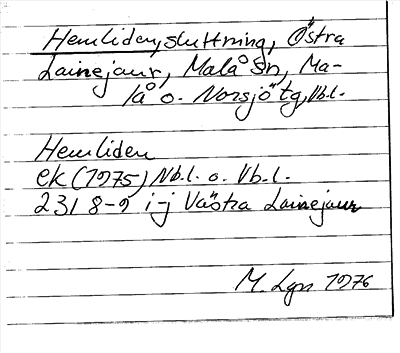 Hemlidensluttning, Östra
Lainejaur, Malå Sn, Ma-
lå o. Norsjö tg, Vb.l.
Hemliden
ek (1975) Nb.l. o. Vb.l.
23I 8-9 i-j Västra Lainejaur
M. Lgn 1976